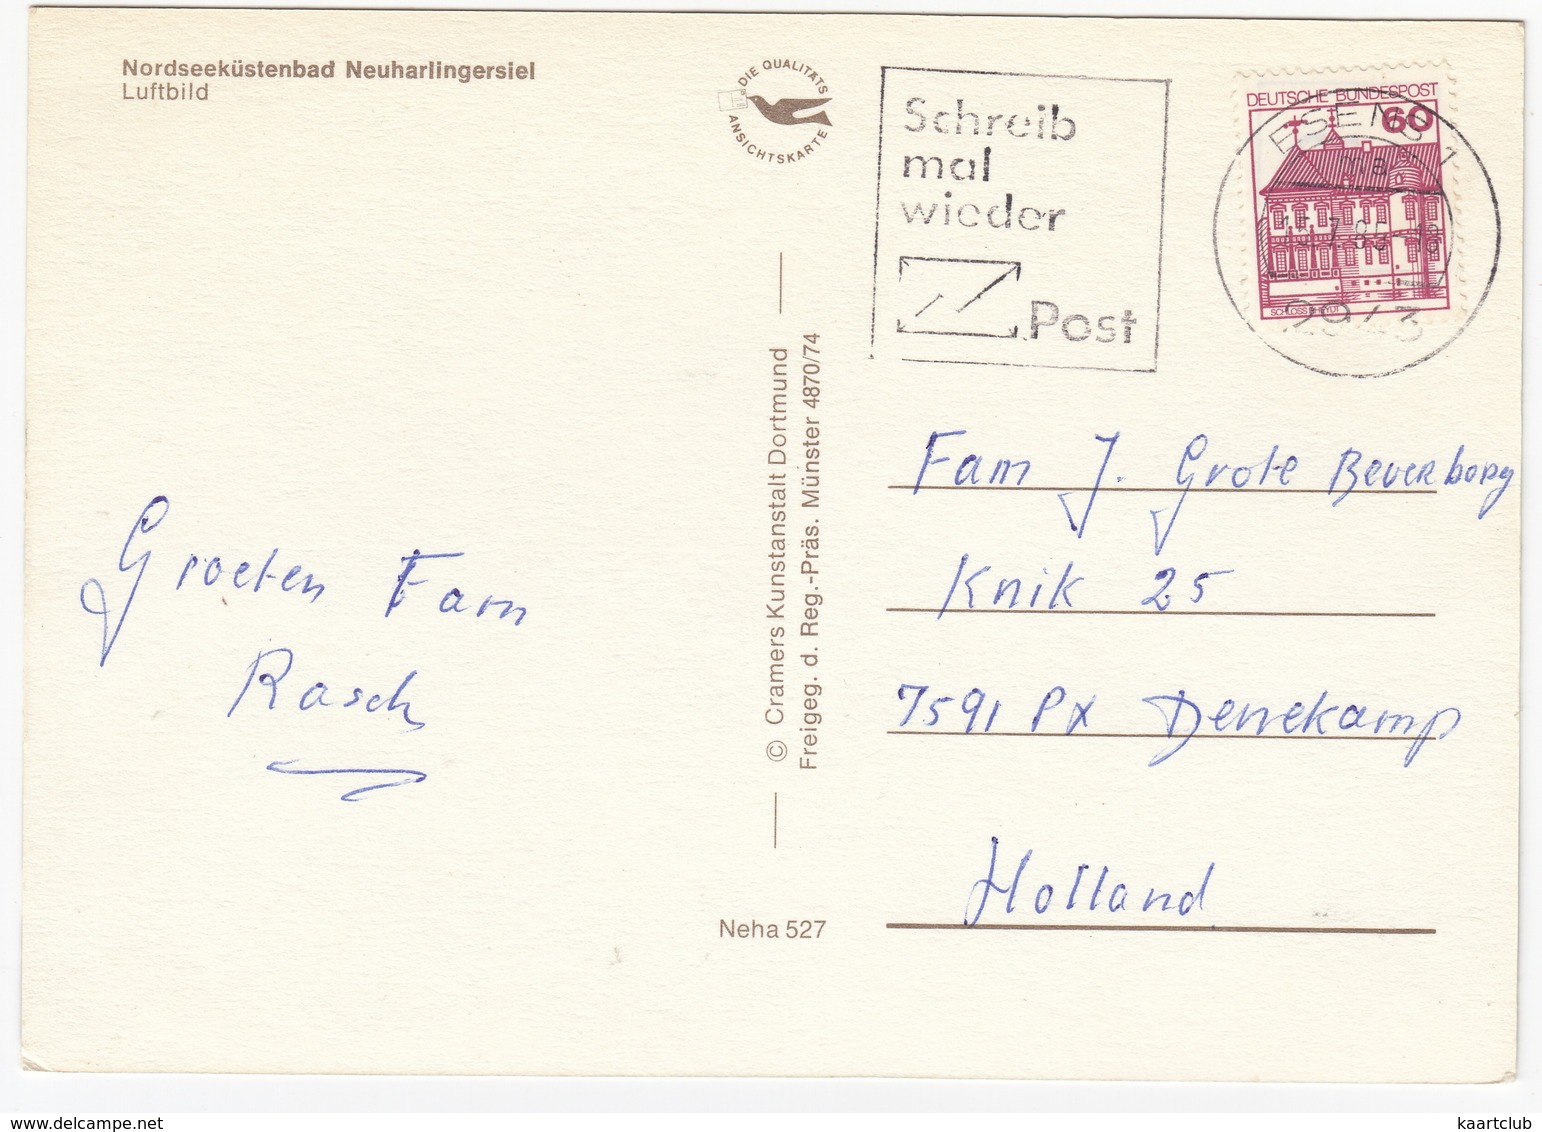 Nordseeküstenbad Neuharlingersiel
Luftbild
DIE QUALITÄTS
ANSICHTSKARTE
Schreib
mal
wieder
Post
DEUTSCHE BUNDESPOST
60
ESENS 1
ma
15.7.85-18
2943
SCHLOSS RHEYDT
Groeten Fam
Rasch
© Cramers Kunstanstalt Dortmund
Freigeg. d. Reg.-Präs. Münster 4870/74
Neha 527
Fam J. Grote Beverborg
Knik 25
7591 PX Denekamp
Holland
delcampe.net
kaartclub